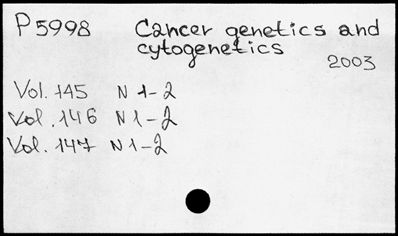 P 5998 Cancer genetics and
cytogenetics
2003
Vol. 145 N 1-2
Vol. 146 N 1-2
Vol. 147 N 1-2